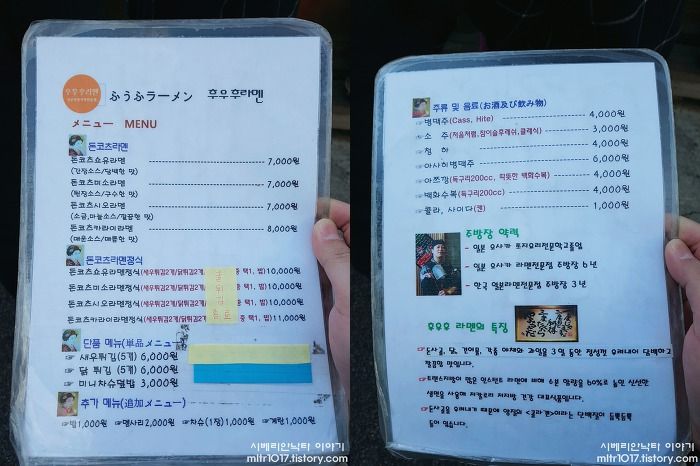 후우후라멘
ふうふラーメン 후우후라멘
メニュー MENU
돈코츠라멘
돈코츠쇼유라멘 7,000원
(간장소스/담백한 맛)
돈코츠미소라멘 7,000원
(된장소스/구수한 맛)
돈코츠시오라멘 7,000원
(소금,마늘소스/깔끔한 맛)
돈코츠카라이라멘 8,000원
(매운소스/매콤한 맛)
돈코츠라멘정식
돈코츠쇼유라멘정식(새우튀김2개/닭튀김2개 중 택1, 밥)10,000원
돈코츠미소라멘정식(새우튀김2개/닭튀김2개 중 택1, 밥)10,000원
돈코츠시오라멘정식(새우튀김2개/닭튀김2개 중 택1, 밥)10,000원
돈코츠카라이라멘정식(새우튀김2개/닭튀김2개 중 택1, 밥)11,000원
단품 메뉴(単品メニュー)
새우튀김(5개) 6,000원
닭 튀김(5개) 6,000원
미니차슈덮밥 3,000원
추가 메뉴(追加メニュー)
밥1,000원 면사리2,000원 차슈(1장)1,000원 계란1,000원
주류 및 음료(お酒及び飲み物)
병맥주(Cass, Hite) 4,000원
소 주(처음처럼,참이슬후레쉬,클래식) 3,000원
청 하 4,000원
아사히병맥주 6,000원
아쯔깡(도쿠리200cc, 따뜻한 백화수복) 4,000원
백화수복(도쿠리200cc) 4,000원
콜라, 사이다(캔) 1,000원
주방장 약력
- 일본 오사카 츠지요리전문학교졸업
- 일본 오사카 라멘전문점 주방장 6년
- 한국 일본라멘전문점 주방장 3년
후우후 라멘의 특징
돈사골, 닭, 건어물, 각종 야채와 과일을 3일 동안 정성껏 우려내어 담백하고
깔끔한 맛입니다.
트랜스지방이 많은 인스턴트 라면에 비해 수분 함량을 60%로 높인 신선한
생면을 사용해 저칼로리 저지방 건강 대표식품입니다.
돈사골을 우려내기 때문에 양질의 <콜라겐>이라는 단백질이 듬뿍듬뿍
들어 있습니다.
시베리안낙타 이야기
mltr1017.tistory.com
시베리안낙타 이야기
mltr1017.tistory.com